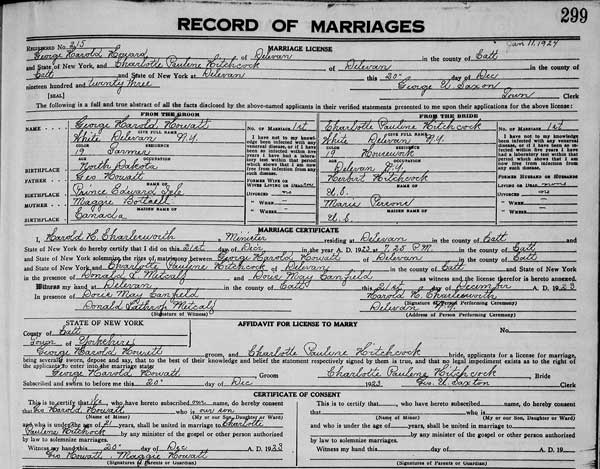 299
RECORD OF MARRIAGES
Jan 11, 1924
REGISTERED No. 213
MARRIAGE LICENSE
George Harold Howard of Delevan in the county of Catt
and State of New York, and Charlotte Pauline Hitchcock of Delevan in the county of
Catt and State of New York at Delevan this 20" day of Dec
nineteen hundred and twenty three George U Saxon
[SEAL] Town Clerk
The following is a full and true abstract of all the facts disclosed by the above-named applicants in their verified statements presented to me upon their applications for the above license:
FROM THE GROOM FROM THE BRIDE
NAME George Harold Howatt NO. OF MARRIAGE 1st Charlotte Pauline Hitchcock NO. OF MARRIAGE 1st
GIVE FULL NAME GIVE FULL NAME
White Delevan N.Y. White Delevan N.Y.
COLOR RESIDENCE COLOR RESIDENCE
19 Farmer 19 Housework
AGE OCCUPATION AGE OCCUPATION
I have not to my knowledge been infected with any venereal disease, or if I have been so infected within five years I have had a laboratory test within that period which shows that I am now free from infection from any such disease.
BIRTHPLACE North Dakota Delevan N.Y.
FATHER Geo Howatt Herbert Hitchcock
NAME OF NAME OF
BIRTHPLACE Prince Edward Isle U.S.
MOTHER Maggie Marie Persons
MAIDEN NAME OF MAIDEN NAME OF
BIRTHPLACE Canada U.S.
FORMER WIFE OR WIVES LIVING OR DEAD FORMER HUSBAND OR HUSBANDS LIVING OR DEAD none
DIVORCED no DIVORCED no
" WHEN " WHEN
" WHERE " WHERE
MARRIAGE CERTIFICATE
I, Harold H. Charlesworth a Minister residing at Delevan in the county of Catt and
State of New York do hereby certify that I did on this 21st day of Dec in the year A. D. 1923 at 7.25 P.M. in the county of Catt
and State of New York solemnize the rites of matrimony between George Harold Howatt of Delevan in the county of Catt
and State of New York, and Charlotte Pauline Hitchcock of Delevan in the county of Catt and State of New York
in the presence of Donald L Metcalf and Doris May Canfield as witness and the license therefor is hereto annexed.
Witness my hand at Delevan in the county of Catt this 21st day of December A. D. 1923
In presence of Doris May Canfield Harold H. Charlesworth
(Signature of Person Performing Ceremony)
Donald Lathrop Metcalf Delevan N.Y.
(Signature of Witness) (Address of Person Performing Ceremony)
STATE OF NEW YORK AFFIDAVIT FOR LICENSE TO MARRY No.
County of Catt
Town of Yorkshire
George Harold Howatt groom, and Charlotte Pauline Hitchcock bride, applicants for a license for marriage,
being severally sworn, depose and say, that to the best of their knowledge and belief the statement respectively signed by them is true, and that no legal impediment exists as to the right of
the applicants to enter into the marriage state.
George Harold Howatt Groom Charlotte Pauline Hitchcock Bride
Subscribed and sworn to before me this 20" day of Dec 1923 Geo. U. Saxton Clerk
CERTIFICATE OF CONSENT
This is to certify that We, who have hereto subscribed our name, do hereby consent This is to certify that, who have hereto subscribed name, do hereby consent
that Geo Harold Howatt who is our son that who is
(Name of Minor) (My or our Son, Daughter or Ward) (Name of Minor) (My or our Son, Daughter or Ward)
and who is under the age of 21 years, shall be united in marriage to Charlotte and who is under the age of years, shall be united in marriage to
Pauline Hitchcock by any minister of the gospel or other person authorized by any minister of the gospel or other person authorized
by law to solemnize marriages. by law to solemnize marriages.
Witness my hand this 20" day of Dec A. D. 1923 Witness my hand this day of A. D. 19
Geo Howatt Maggie Howatt
(Signatures of Parents or Guardian) (Signatures of Parents or Guardian)